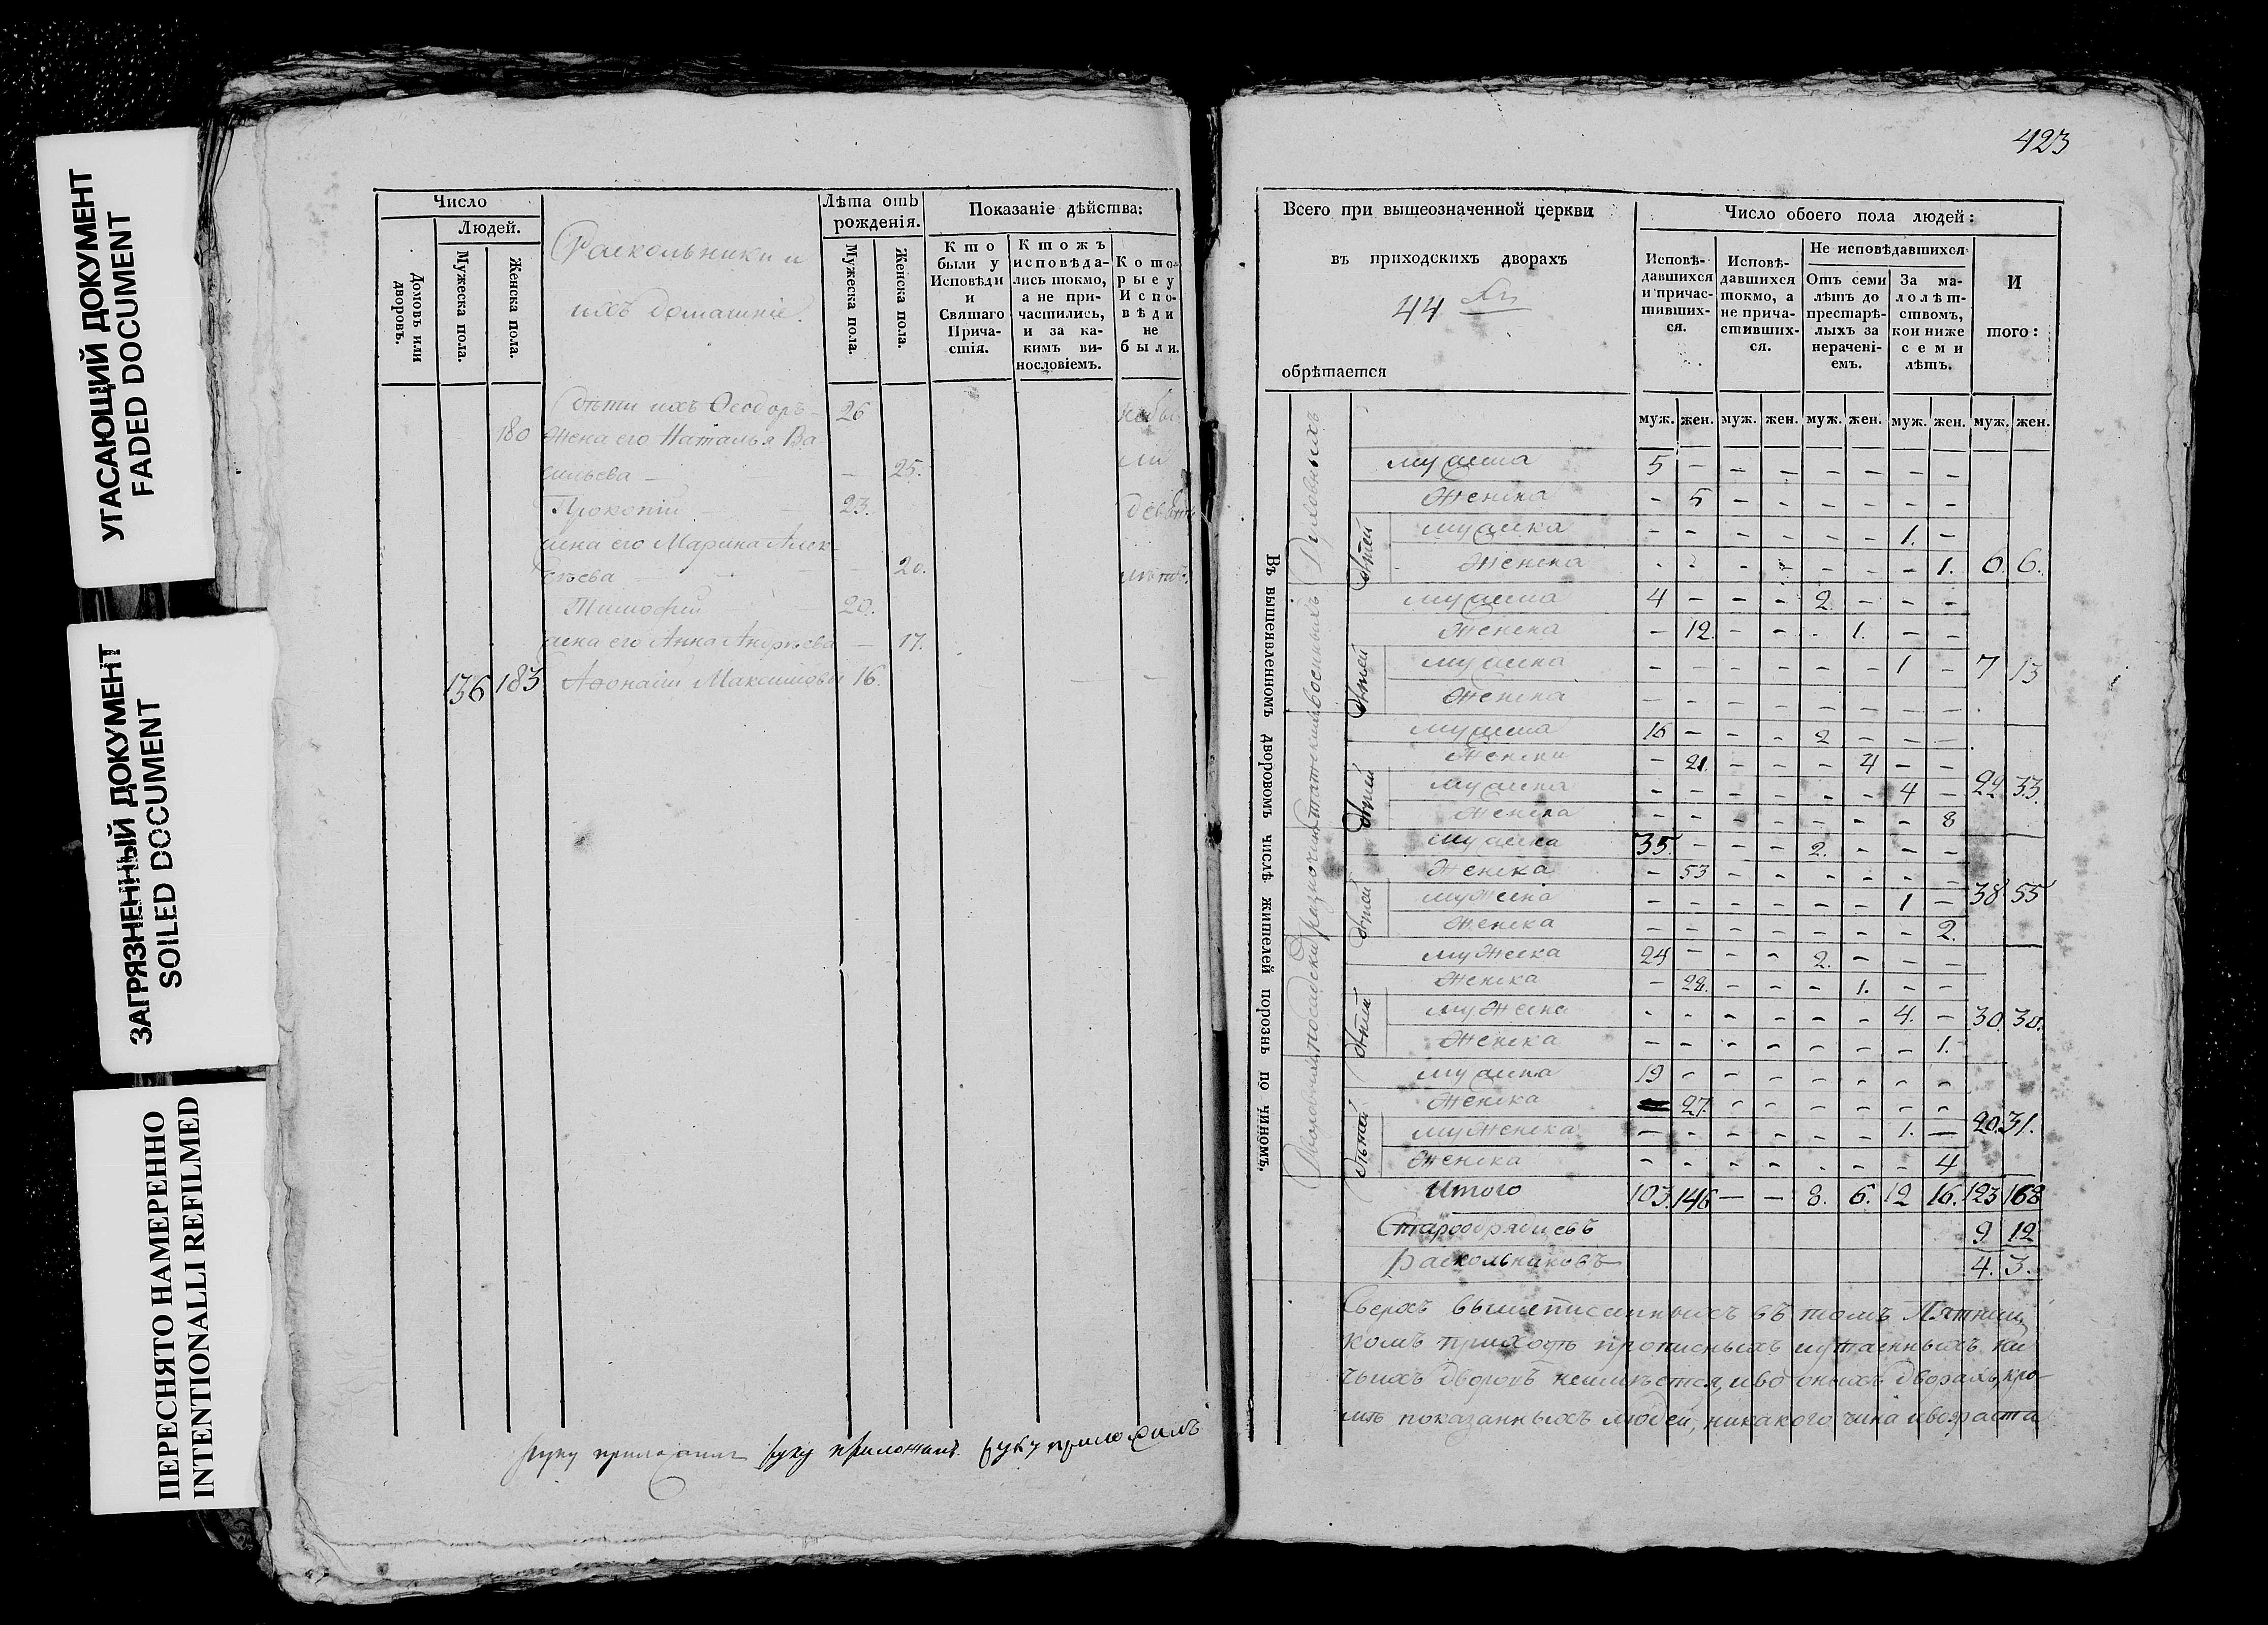 УГАСАЮЩИЙ ДОКУМЕНТ
FADED DOCUMENT
ЗАГРЯЗНЕННЫЙ ДОКУМЕНТ
SOILED DOCUMENT
ПЕРЕСНЯТО НАМЕРЕННО
INTENTIONALLI REFILMED
Число
Людей.
Домовъ или дворовъ.
Мужеска пола.
Женска пола.
Раскольники и
ихъ домашніе.
Лѣта отъ рожденія.
Мужеска пола.
Женска пола.
Показаніе дѣйства:
Кто были у Исповѣди и Святаго Прича- стія.
Ктожъ исповѣда- лись токмо, а не при- частились, и за ка- кимъ ви- нословіемъ.
Кото- рые у Испо- вѣди не были.
дѣти ихъ Ѳеодоръ 26
180 Жена его Наталья Ва
сильева — 25.
Прокопій 23.
жена его Марина Алек
сѣева — 20.
Тимофей 20.
жена его Анна Андреева — 17.
136 183 Афонасій Максимовъ 16.
руку приложилъ руку приложилъ. руку приложилъ
423
Всего при вышеозначенной церкви
въ приходскихъ дворахъ
44
обрѣтается
Число обоего пола людей:
Исповѣ- давшихся и причас- тивших- ся.
Исповѣ- давшихся токмо, а не прича- стивших- ся.
Не исповѣдавшихся
Отъ семи лѣтъ до престарѣ- лыхъ за нераченіемъ.
За ма- лолѣт- ствомъ, кои ниже семи лѣтъ.
И того:
муж. жен. муж. жен. муж. жен. муж. жен. муж. жен.
Въ вышеявленномъ дворовомъ числѣ жителей порознь по чиномъ.
Духовныхъ
мужска 5 - - - - - - -
Женска - 5 - - - - - -
дѣтей
мужска - - - - - - 1. -
Женска - - - - - - - 1. 6. 6.
Военныхъ
мужска 4 - - - 2 - - -
Женска - 12. - - - 1. - -
дѣтей
мужска - - - - - - 1 - 7 13
Женска - - - - - - - -
мужска 16 - - - 2 - - -
Женска - 21. - - - 4 - -
дѣтей
мужска - - - - - - 4 - 22 33.
Женска - - - - - - - 8
мужска 35. - - - 2. - - -
Женска - 53 - - - - - -
дѣтей
мужска - - - - - - 1 - 38 55
Женска - - - - - - - 2.
мужеска 24 - - - 2. - - -
Женска - 28. - - - 1. - -
дѣтей
мужска - - - - - - 4. - 30. 30.
Женска - - - - - - - 1.
мужска 19 - - - - - - -
Женска - 27. - - - - - -
дѣтей
мужеска - - - - - - 1. - 20. 31.
Женска - - - - - - - 4
Итого 103. 146 — — 8. 6. 12 16. 123 168
Старообрядцевъ 9 12
Раскольниковъ 4. 3.
Сверхъ вышеписанныхъ въ томъ Пятниц
комъ приходѣ прописныхъ и утаенныхъ ни
чьихъ дворовъ неимѣется, и во оныхъ дворахъ, кро-
мѣ показанныхъ людей, никакого чина и возраста